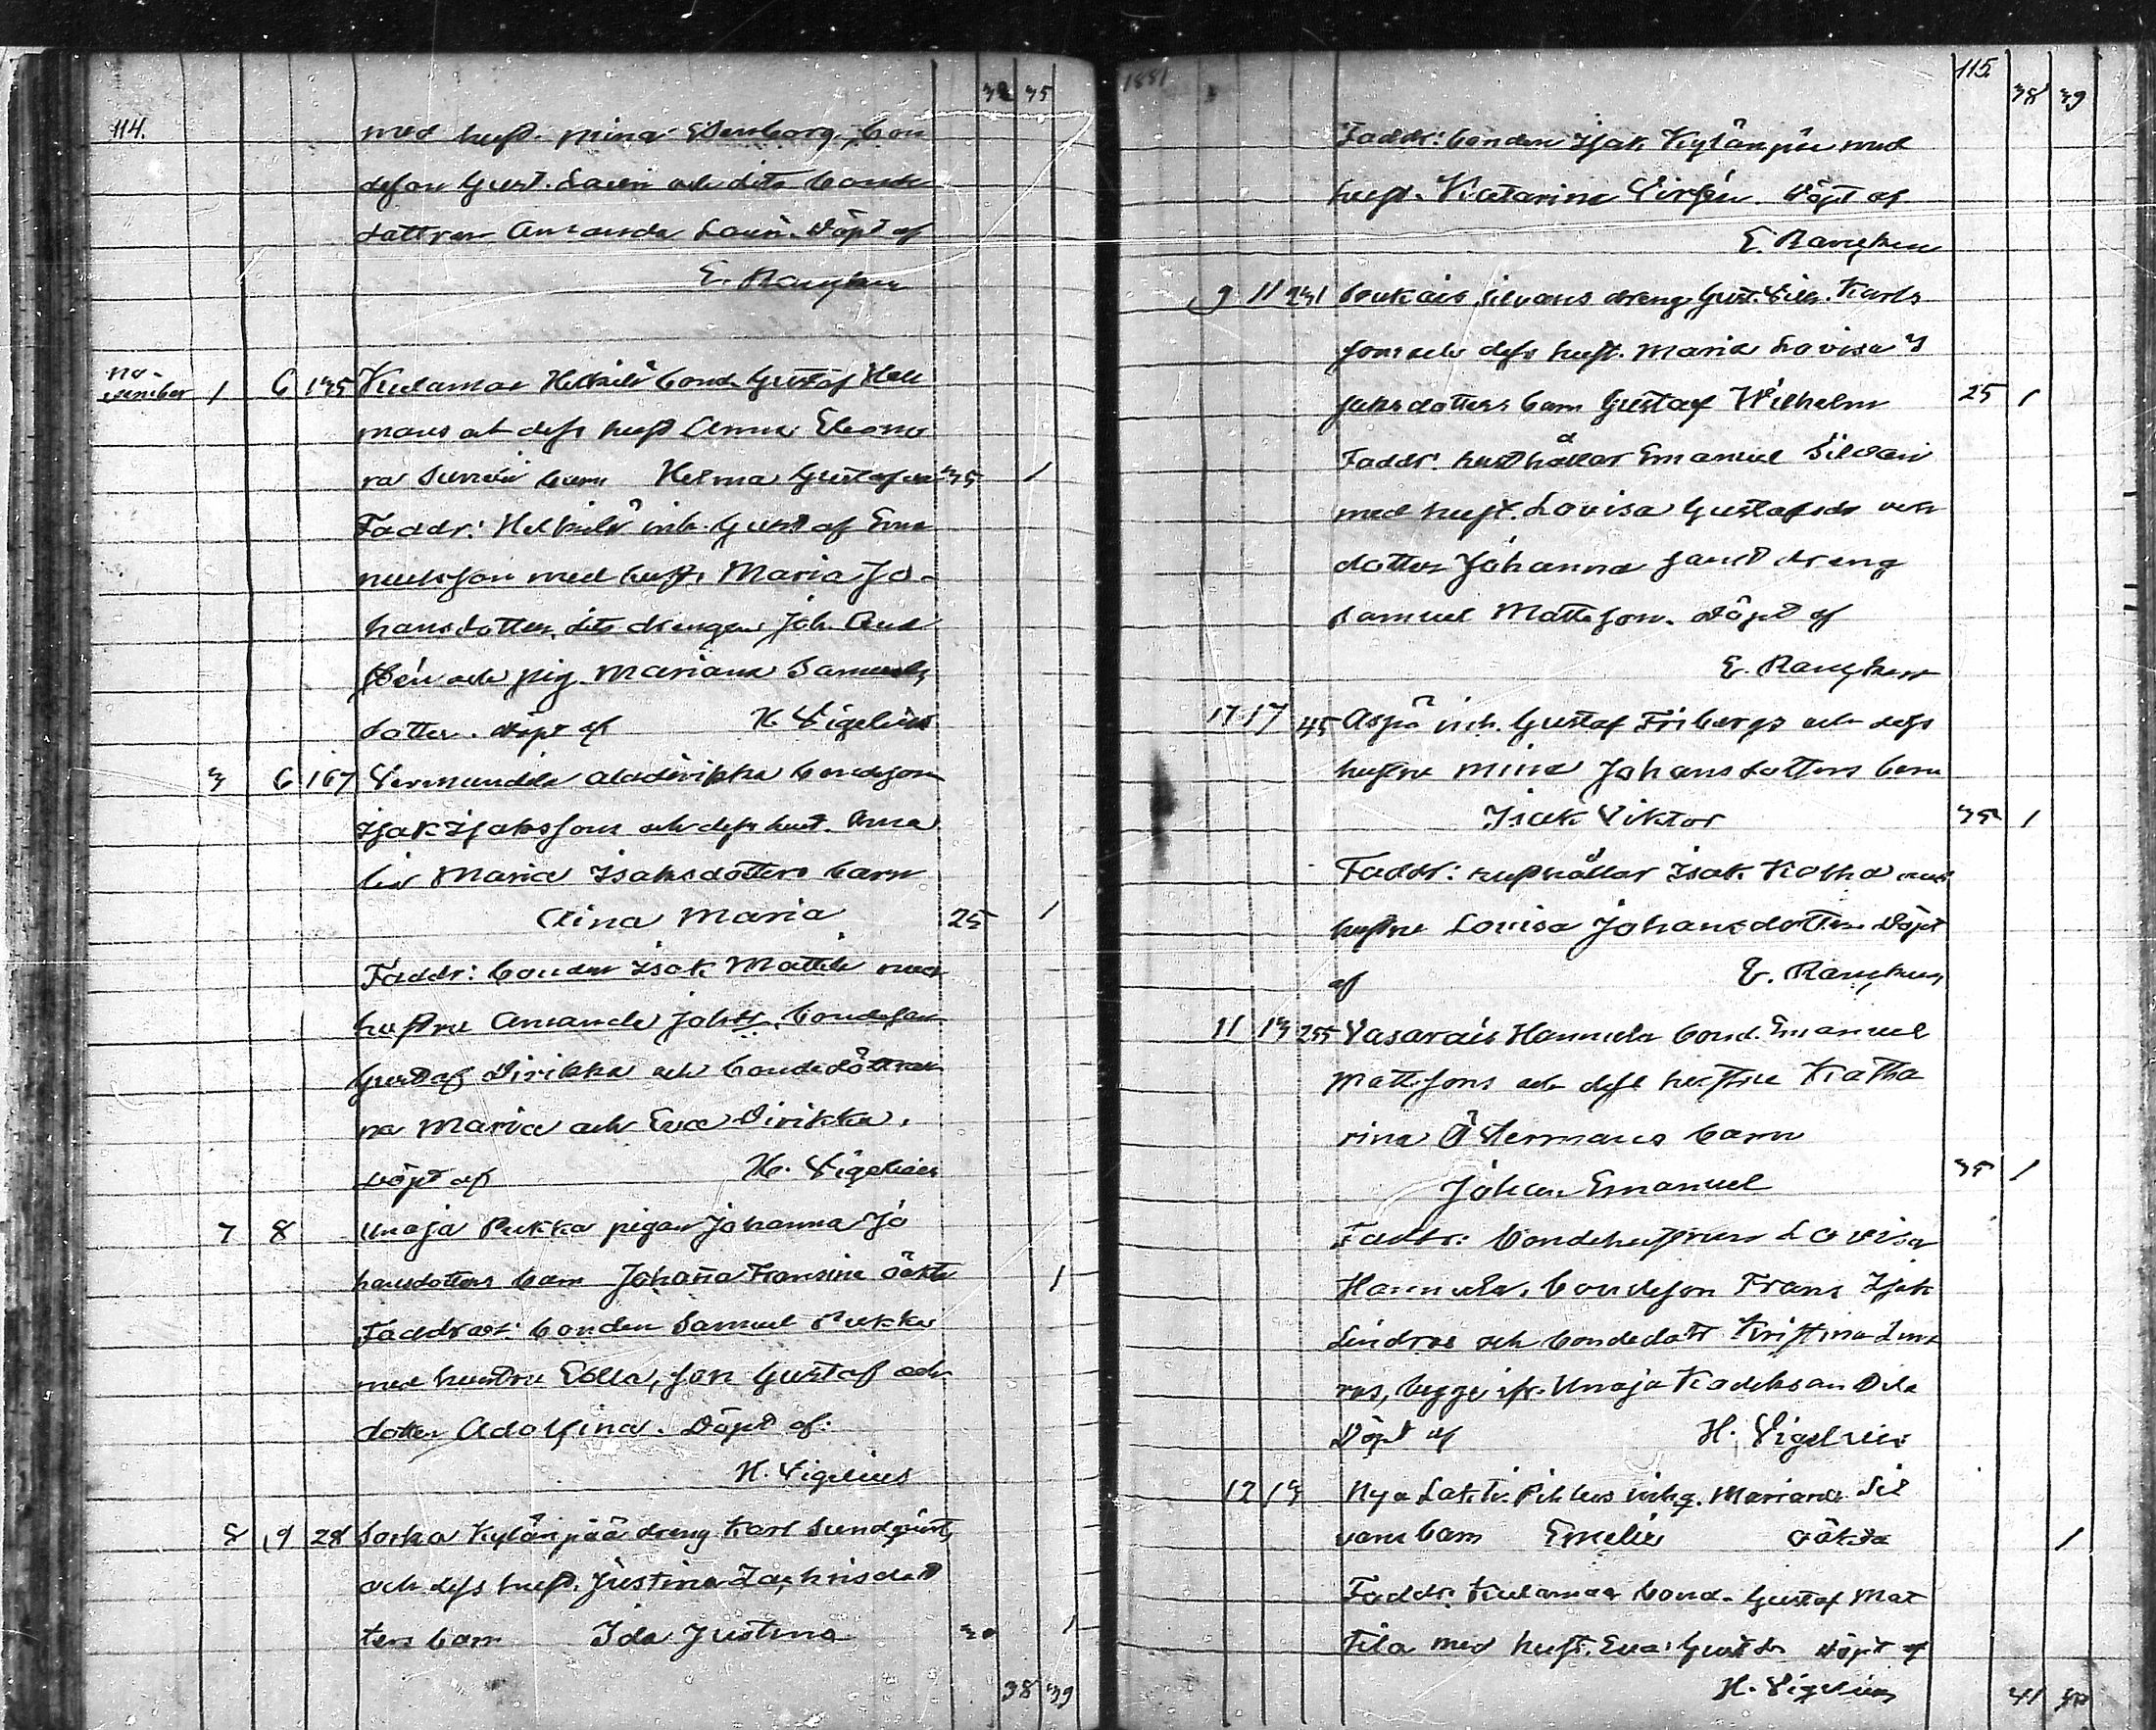 114.
38 35
med hust. Mina Stenborg, bon
deson Gust. Lauri och dito bonde
dattren Amanda Lauri. Döpt af
E. Rancken
No-
vember 1 6 135 Kulamaa Heikilä bond. Gustaf Hell
mans och dess hust Anna Eleono
ra barn Helma Gustafva 35 1
Faddr: Heikilä inh. Gustaf Ema
nuelsson med hust. Maria Jo-
hansdotter, dito drengen Joh. And
och pig. Mariana Samuels
dotter. Döpt af H. Vigelius
3 6 167 Vermundila Aladirikka bondeson
Isak Isakssons och dess hust. Ama
lia Maria Isaksdotters barn
Aina Maria 25 1
Faddr: bonden Isak Mattila med
hustru Amanda Johsdr, bondeson
Gustaf Dirikka och bondedöttrar
na Maria och Eva Dirikka.
Döpt af H. Vigelius
7 8 Unaja Pukka pigan Johanna Jo
hansdotters barn Johanna Fransina oäkta 1
Faddrar: bonden Samuel Pukka
med hustru Eolla, son Gustaf och
dotter Adolfina. Döpt af:
H. Vigelius
8 9 28 Sorka Kylänpää dreng Karl Sundqvists
och dess hust. Justina Zachrisdot
ters barn Ida Justina 30 1
38 39
1881
115.
38 39
Faddr: bonden Isak Kylänpää med
hust. Katarina Döpt af
E. Rancken
9 11 231 Silvans dreng Gust. Vilh. Karls
sons och dess hust. Maria Lovisa I
saksdotters barn Gustaf Wilhelm 25 1
Faddr: hushållar Emanuel Silvan
med hust. Lovisa Gustafsdr och
dotter Johanna samt dreng
Samuel Mattsson. Döpt af
E. Rancken
17 17 45 Aspo inh. Gustaf Fribergs och dess
hustru Mina Johansdotters barn
Isak Viktor 35 1
Faddr: hushållar Isak Kotka med
hustru Lovisa Johansdotter. Döpt
af E. Rancken
11 13 255 Vasarais Hannula bond. Emanuel
Mattssons och dess hustru Katha
rina Östermans barn
Johan Emanuel 35 1
Faddr: bondehustrun Lovisa
Hannula, bondeson Frans Isak
Lindroos och bondedott Kristina Lind
ros, begge ifr. Unaja
Döpt af H. Vigelius
12 13 Nya Lahti Pihlus inhg. Mariana Sil
vans barn Emelie oäkta 1
Faddr: Kulamaa bond. Gustaf Mat
tila med hust. Eva Gustdr Döpt af
H. Vigelius
41 40